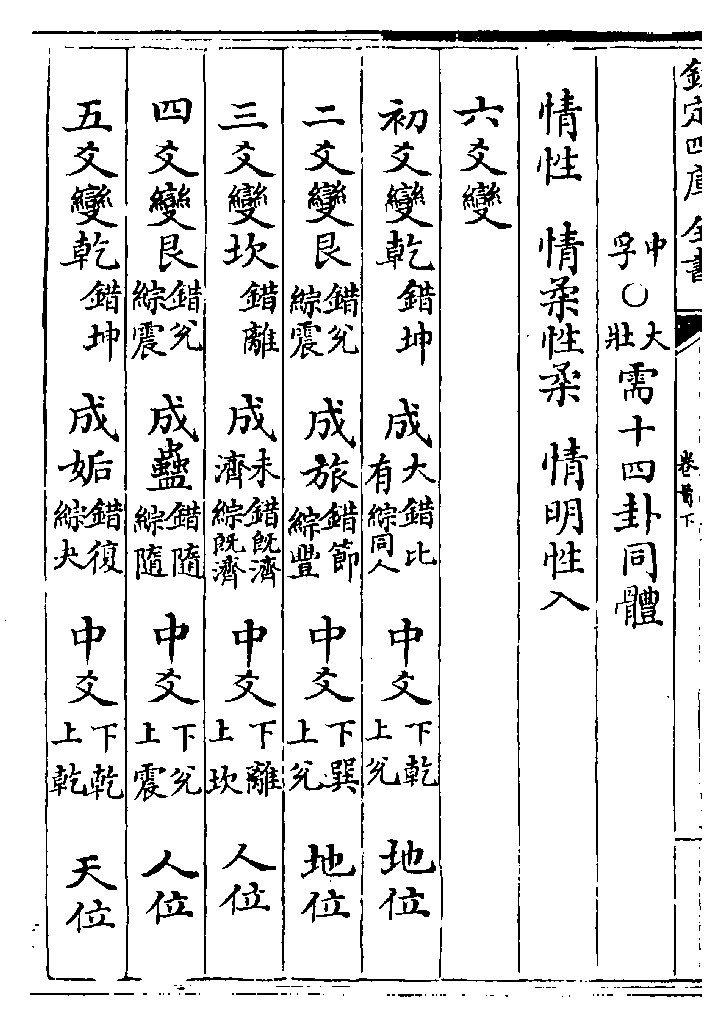 欽定四庫全書
卷首下
中孚○大壯需十四卦同體
情性　情柔性柔　情明性入
六爻變
初爻變乾錯坤　成大有錯比綜同人　中爻下乾上兌　地位
二爻變艮錯兌綜震　成旅錯節綜豐　中爻下巽上兌　地位
三爻變坎錯離　成未濟錯既濟綜既濟　中爻下離上坎　人位
四爻變艮錯兌綜震　成蠱錯隨綜隨　中爻下兌上震　人位
五爻變乾錯坤　成姤錯復綜夬　中爻下乾上乾　天位